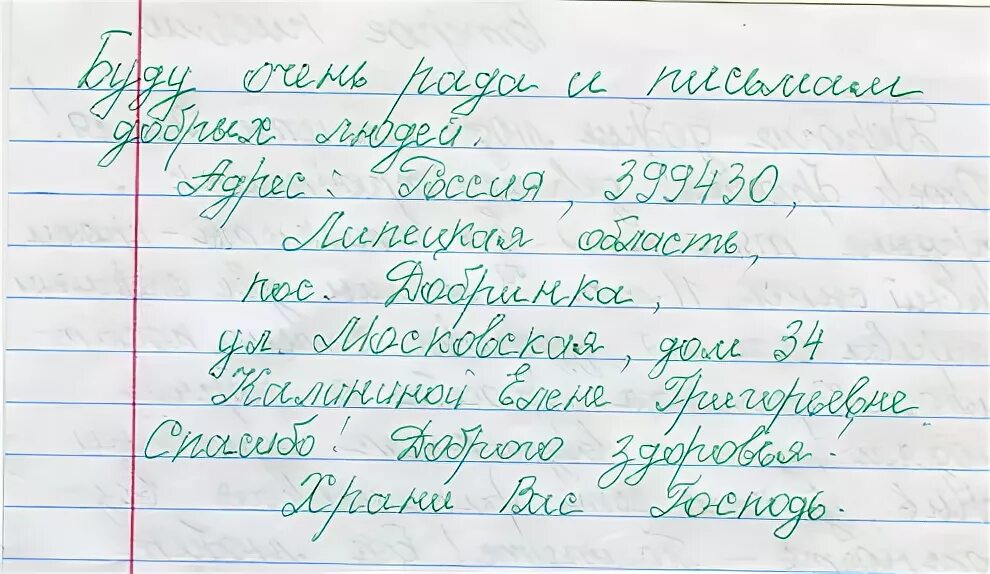 Буду очень рада и письмам
добрых людей.
Адрес: Россия, 399430,
Липецкая область,
пос. Добринка,
ул. Московская, дом 34
Калининой Елене Григорьевне
Спасибо! Доброго здоровья!
Храни Вас Господь.